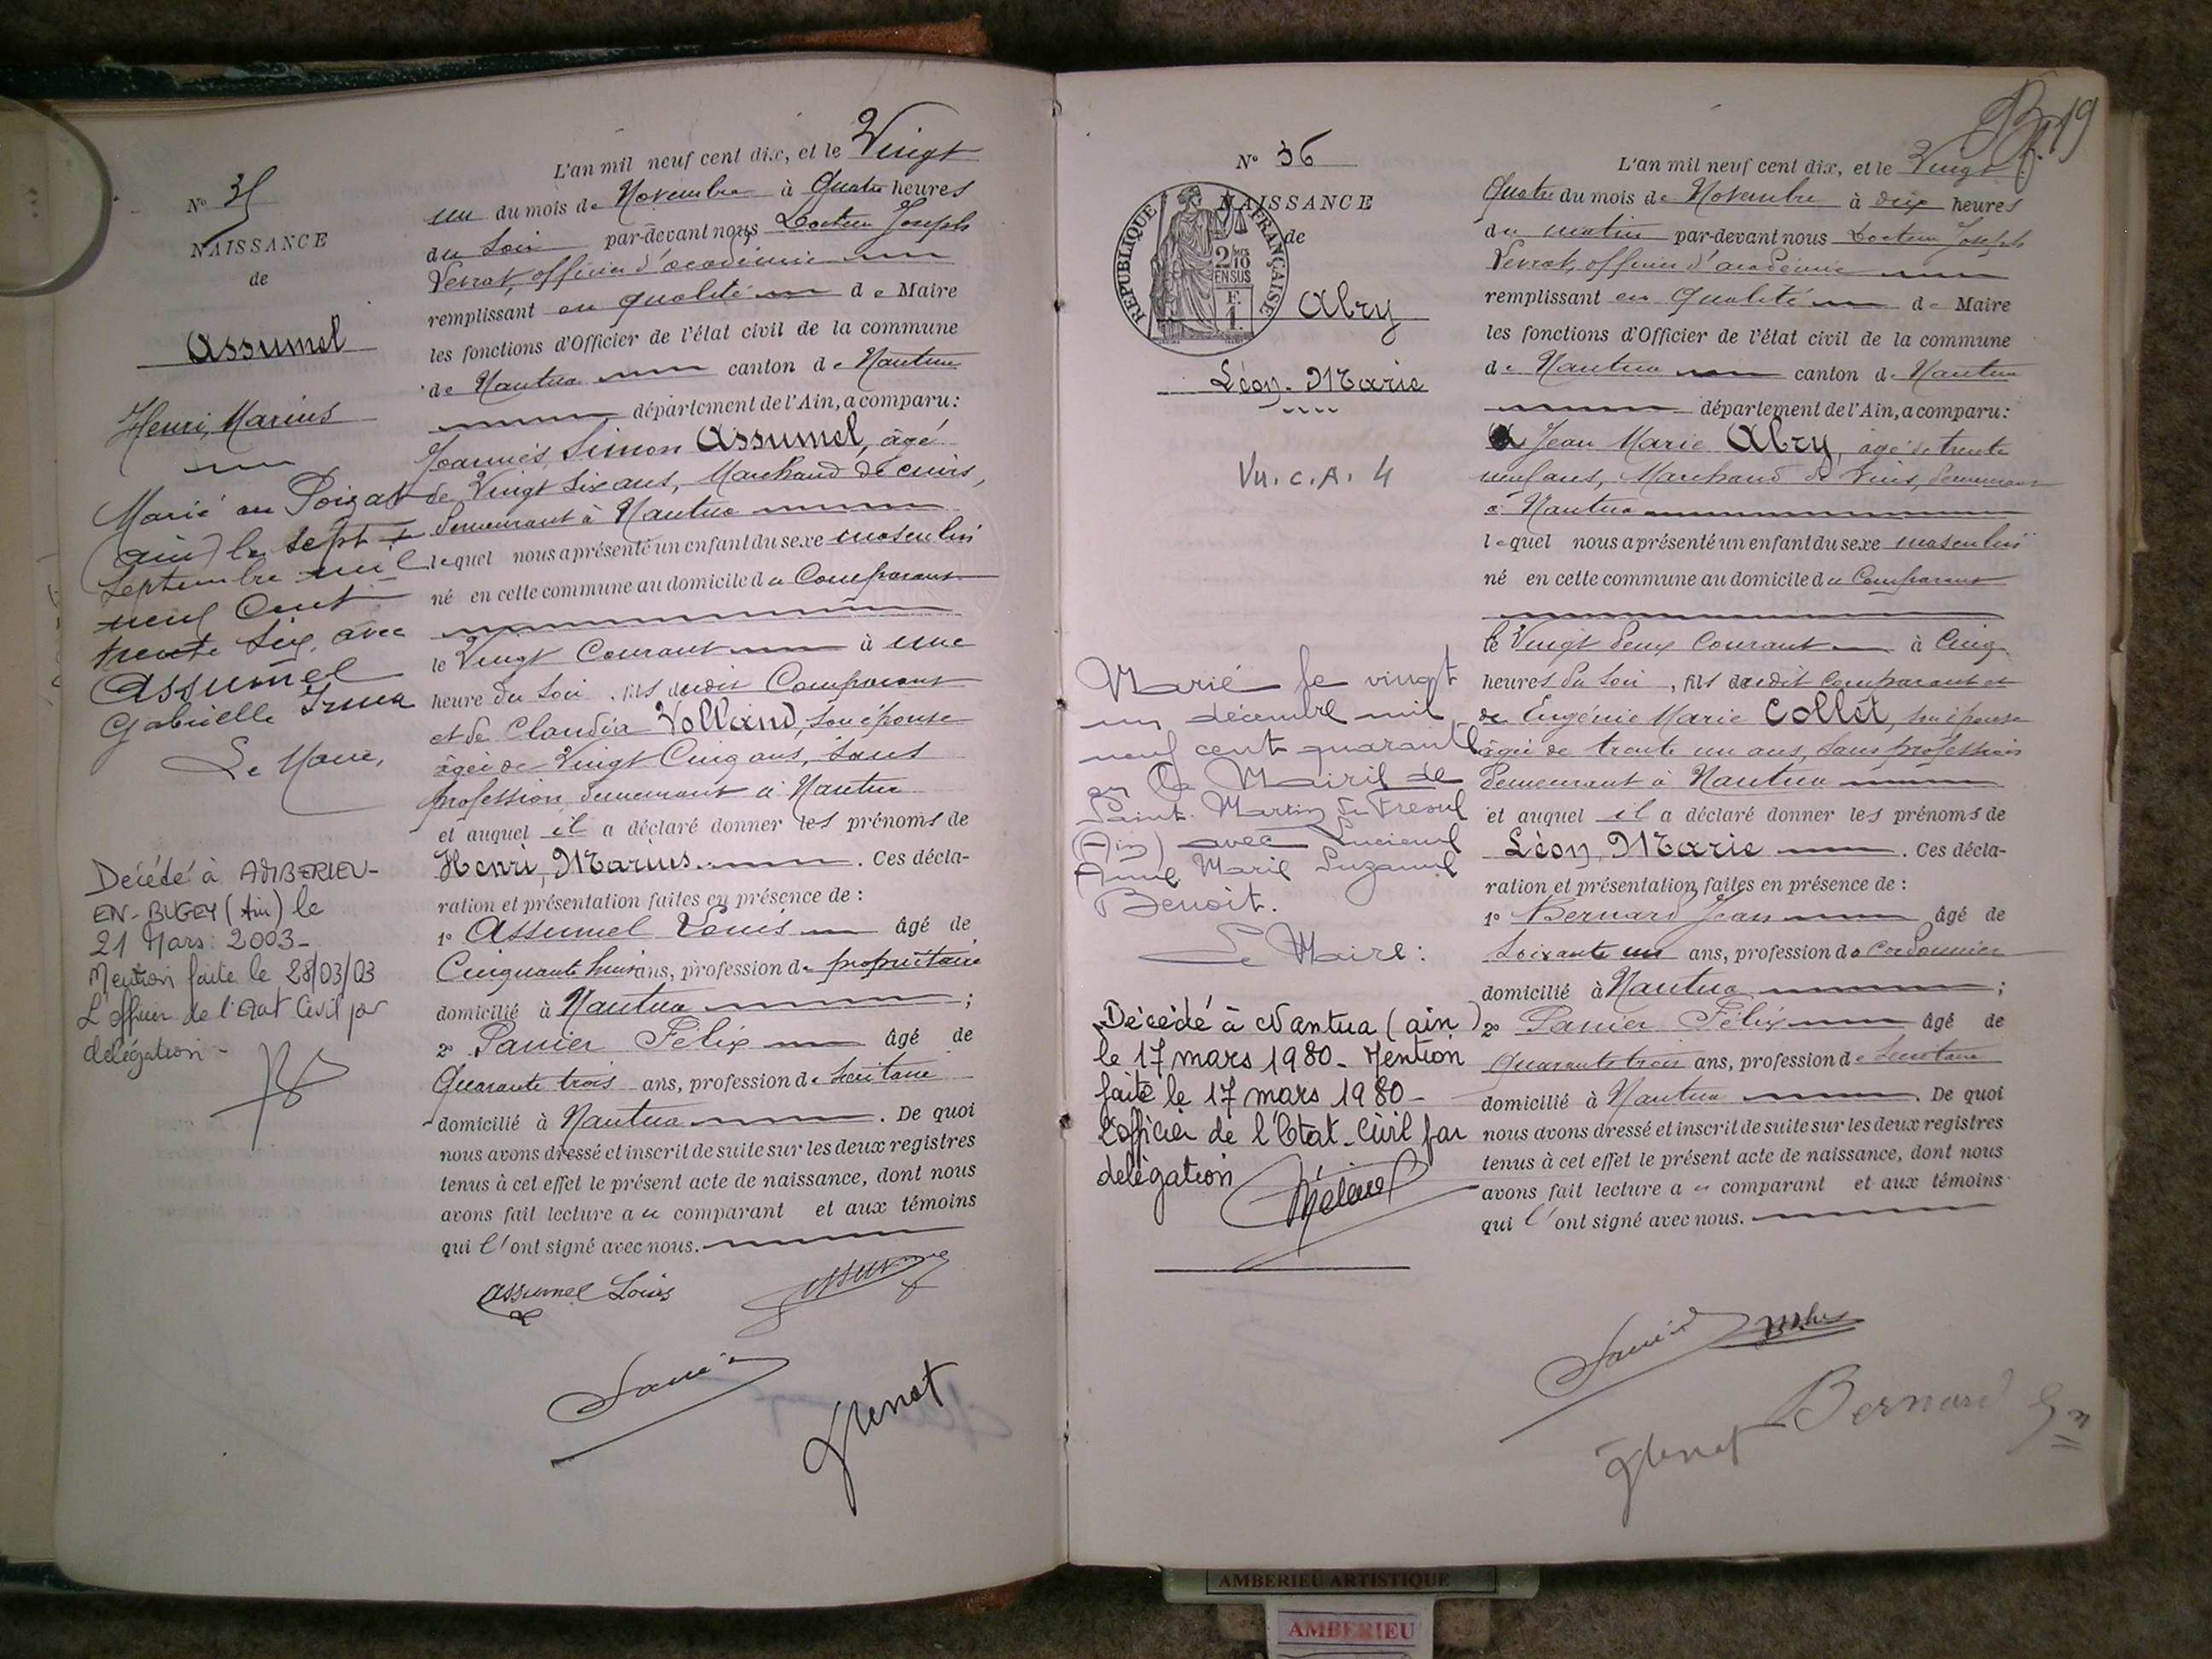 N° 35
NAISSANCE
de
Assumel
Henri, Marius
Marié au Poizat
(ain) le sept
septembre mil
neuf Cent
trente six, avec
Assumel
Gabrielle Irma
Le Maire,
Décédé à AMBERIEU-
EN-BUGEY (Ain) le
21 Mars 2003-
Mention faite le 28/03/03
L'officier de l'Etat Civil par
délégation-
L'an mil neuf cent dix, et le Vingt
un du mois de Novembre à Quatre heures
du Soir par-devant nous Docteur Joseph
officier d'académie
remplissant en qualité de Maire
les fonctions d'Officier de l'état civil de la commune
de Nantua canton de Nantua
département de l'Ain, a comparu:
Joannès, Simon Assumel, âgé
de Vingt six ans, Marchand de cuirs,
demeurant à Nantua
lequel nous a présenté un enfant du sexe masculin
né en cette commune au domicile du Comparant
le Vingt Courant à une
heure du Soir, fils dudit Comparant
et de Claudia Volland, son épouse
âgée de Vingt Cinq ans, sans
profession, demeurant à Nantua
et auquel il a déclaré donner les prénoms de
Henri, Marius. Ces décla-
ration et présentation faites en présence de :
1° Assumel Louis âgé de
Cinquante huit ans, profession de propriétaire
domicilié à Nantua ;
2° Panier Félix âgé de
Quarante trois ans, profession de Secrétaire
domicilié à Nantua. De quoi
nous avons dressé et inscrit de suite sur les deux registres
tenus à cet effet le présent acte de naissance, dont nous
avons fait lecture au comparant et aux témoins
qui l'ont signé avec nous.
Assumel Louis
19
N° 36
NAISSANCE
de
RÉPUBLIQUE FRANÇAISE
2/10
EN SUS
F.
1.
Abry
Léon-Marie
Vu. C. A. 4
Marié le vingt
un décembre mil
neuf cent quarante
en la Mairie de
Saint-Martin du Fresne
(Ain) avec Lucienne
Anne Marie Suzanne
Benoit.
Le Maire :
Décédé à Nantua (ain)
le 17 mars 1980- Mention
faite le 17 mars 1980-
L'officier de l'Etat-Civil par
délégation
L'an mil neuf cent dix, et le Vingt
Quatre du mois de Novembre à dix heures
du matin par-devant nous Docteur Joseph
officier d'académie
remplissant en Qualité de Maire
les fonctions d'Officier de l'état civil de la commune
de Nantua canton de Nantua
département de l'Ain, a comparu:
Jean Marie Abry, âgé de trente
neuf ans, Marchand de Vins, demeurant
à Nantua
lequel nous a présenté un enfant du sexe masculin
né en cette commune au domicile du Comparant
le Vingt deux Courant à Cinq
heures du Soir, fils dudit Comparant et
de Eugénie Marie Collet, son épouse
âgée de trente un ans, sans profession
demeurant à Nantua
et auquel il a déclaré donner les prénoms de
Léon, Marie. Ces décla-
ration et présentation faites en présence de :
1° Bernard Jean âgé de
Soixante un ans, profession de Cordonnier
domicilié à Nantua ;
2° Panier Félix âgé de
Quarante trois ans, profession de Secrétaire
domicilié à Nantua. De quoi
nous avons dressé et inscrit de suite sur les deux registres
tenus à cet effet le présent acte de naissance, dont nous
avons fait lecture au comparant et aux témoins
qui l'ont signé avec nous.
Bernard
AMBERIEU ARTISTIQUE
AMBERIEU